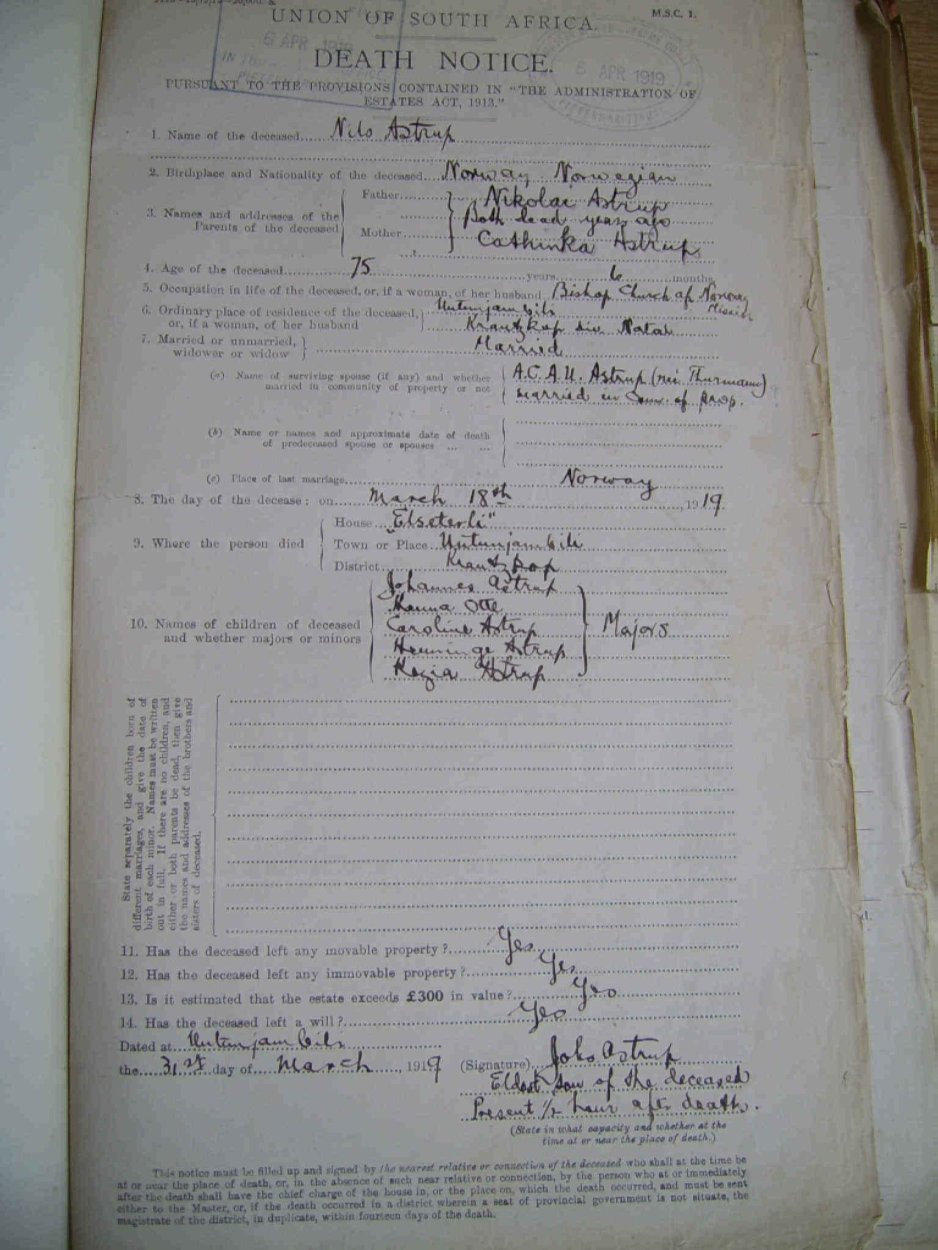 UNION OF SOUTH AFRICA.
M.S.C. 1.
6 APR 1919
6 APR 1919
DEATH NOTICE.
PURSUANT TO THE PROVISIONS CONTAINED IN "THE ADMINISTRATION OF
ESTATES ACT, 1913."
1. Name of the deceased Nils Astrup
2. Birthplace and Nationality of the deceased Norway Norwegian
3. Names and addresses of the Parents of the deceased
Father Nikolai Astrup
Both dead years ago
Mother Cathinka Astrup
4. Age of the deceased 75 years 6 months
5. Occupation in life of the deceased, or, if a woman, of her husband Bishop Church of Norway Mission
6. Ordinary place of residence of the deceased, Untunjambili
or, if a woman, of her husband Krantzkop Natal
7. Married or unmarried, widower or widow Married
(a) Name of surviving spouse (if any) and whether A.C.A.U. Astrup (née Thurmann)
married in community of property or not married in Com. of prop.
(b) Name or names and approximate date of death
of predeceased spouse or spouses ... ...
(c) Place of last marriage Norway
8. The day of the decease: on March 18th, 1919.
9. Where the person died
House "Elseterli"
Town or Place Untunjambili
District Krantzkop
10. Names of children of deceased and whether majors or minors
Johannes Astrup
Hanna Otte
Caroline Astrup
Henninge Astrup
Kezia Astrup
Majors
State separately the children born of
different marriages, and give the date of
birth of each minor. Names must be written
out in full. If there are no children, and
either or both parents be dead, then give
the names and addresses of the brothers and
sisters of deceased.
11. Has the deceased left any movable property? Yes
12. Has the deceased left any immovable property? Yes
13. Is it estimated that the estate exceeds £300 in value? Yes
14. Has the deceased left a will? Yes
Dated at Untunjambili
the 31st day of March, 1919
(Signature) Johs Astrup
Eldest Son of the deceased
Present 1/2 hour after death.
(State in what capacity and whether at the
time at or near the place of death.)
This notice must be filled up and signed by the nearest relative or connection of the deceased who shall at the time be
at or near the place of death, or, in the absence of such near relative or connection, by the person who at or immediately
after the death shall have the chief charge of the house in, or the place on, which the death occurred, and must be sent
either to the Master, or, if the death occurred in a district wherein a seat of provincial government is not situate, the
magistrate of the district, in duplicate, within fourteen days of the death.